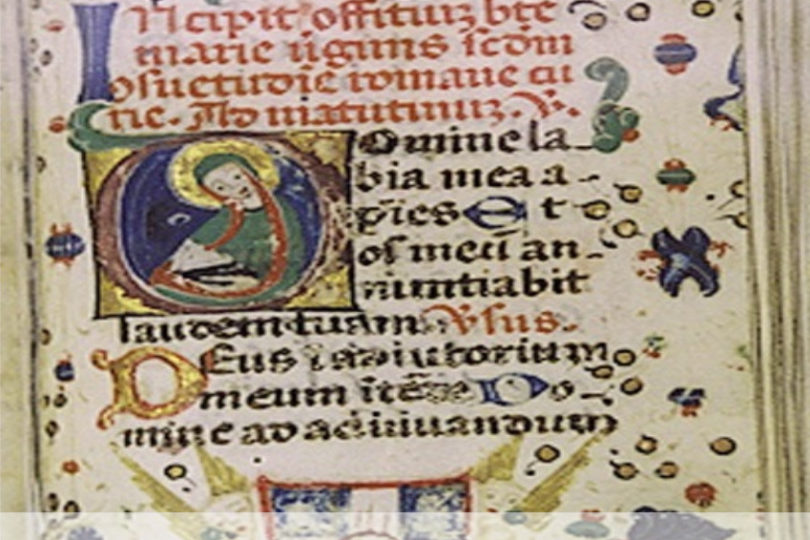 INcipit offitiuz bte
marie ũginis scdm
osuetudiē romane cu
rie. Ad matutinuz. ℣.
Domine la
bia mea a
pies Et
os meū an
nuntiabit
laudem tuam ℣sus.
DEus i adiutorium
meum ītēde Do
mine ad adiuuandum